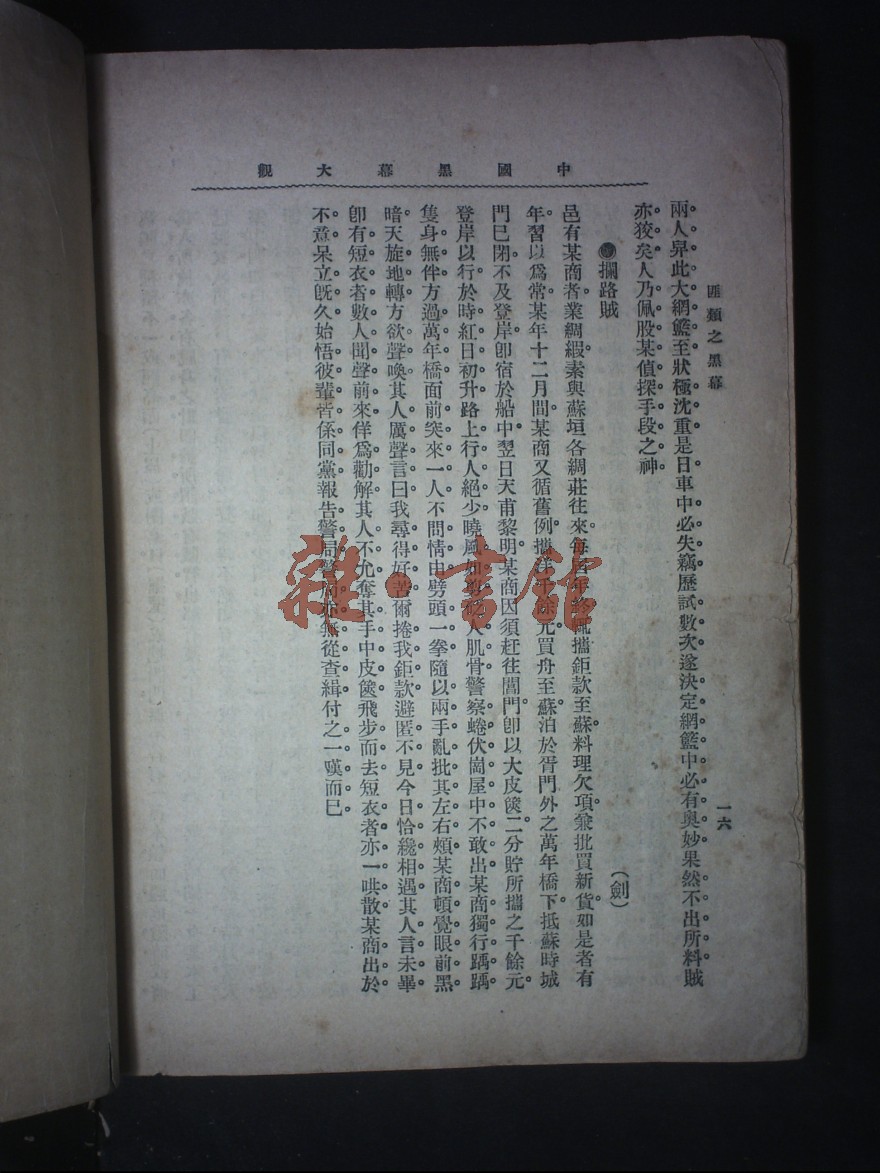 中國黑幕大觀
匪類之黑幕
一六
兩人舁此大網籃至狀極沈重是日車中必失竊歷試數次遂決定網籃中必有奧妙果然不出所料賊
亦狡矣人乃佩股某偵探手段之神。
攔路賊
(劍)
邑有某商者業綢緞素與蘇垣各綢莊往來每屆年終輒攜鉅款至蘇料理欠項兼批買新貨如是者有
年。習以爲常某年十二月間某商又循舊例攜洋千餘元買舟至蘇泊於胥門外之萬年橋下抵蘇時城
門已閉。不及登岸卽宿於船中翌日天甫黎明某商因須赶往閶門卽以大皮篋二分貯所攜之千餘元。
登岸以行於時紅日初升路上行人絕少曉風如剪砭人肌骨警察蜷伏崗屋中不敢出某商獨行踽踽
隻身無伴方過萬年橋面前突來一人不問情由劈頭一拳隨以兩手亂批其左右頰某商頓覺眼前黑
暗天旋地轉方欲聲喚其人厲聲言曰我尋得好苦爾捲我鉅款避匿不見今日恰纔相遇其人言未畢
卽有短衣者數人聞聲前來佯爲勸解其人不允奪其手中皮篋飛步而去短衣者亦一哄散某商出於
不意呆立旣久始悟彼輩皆係同黨報告警局警局亦無從查緝付之一嘆而已
雜·書館